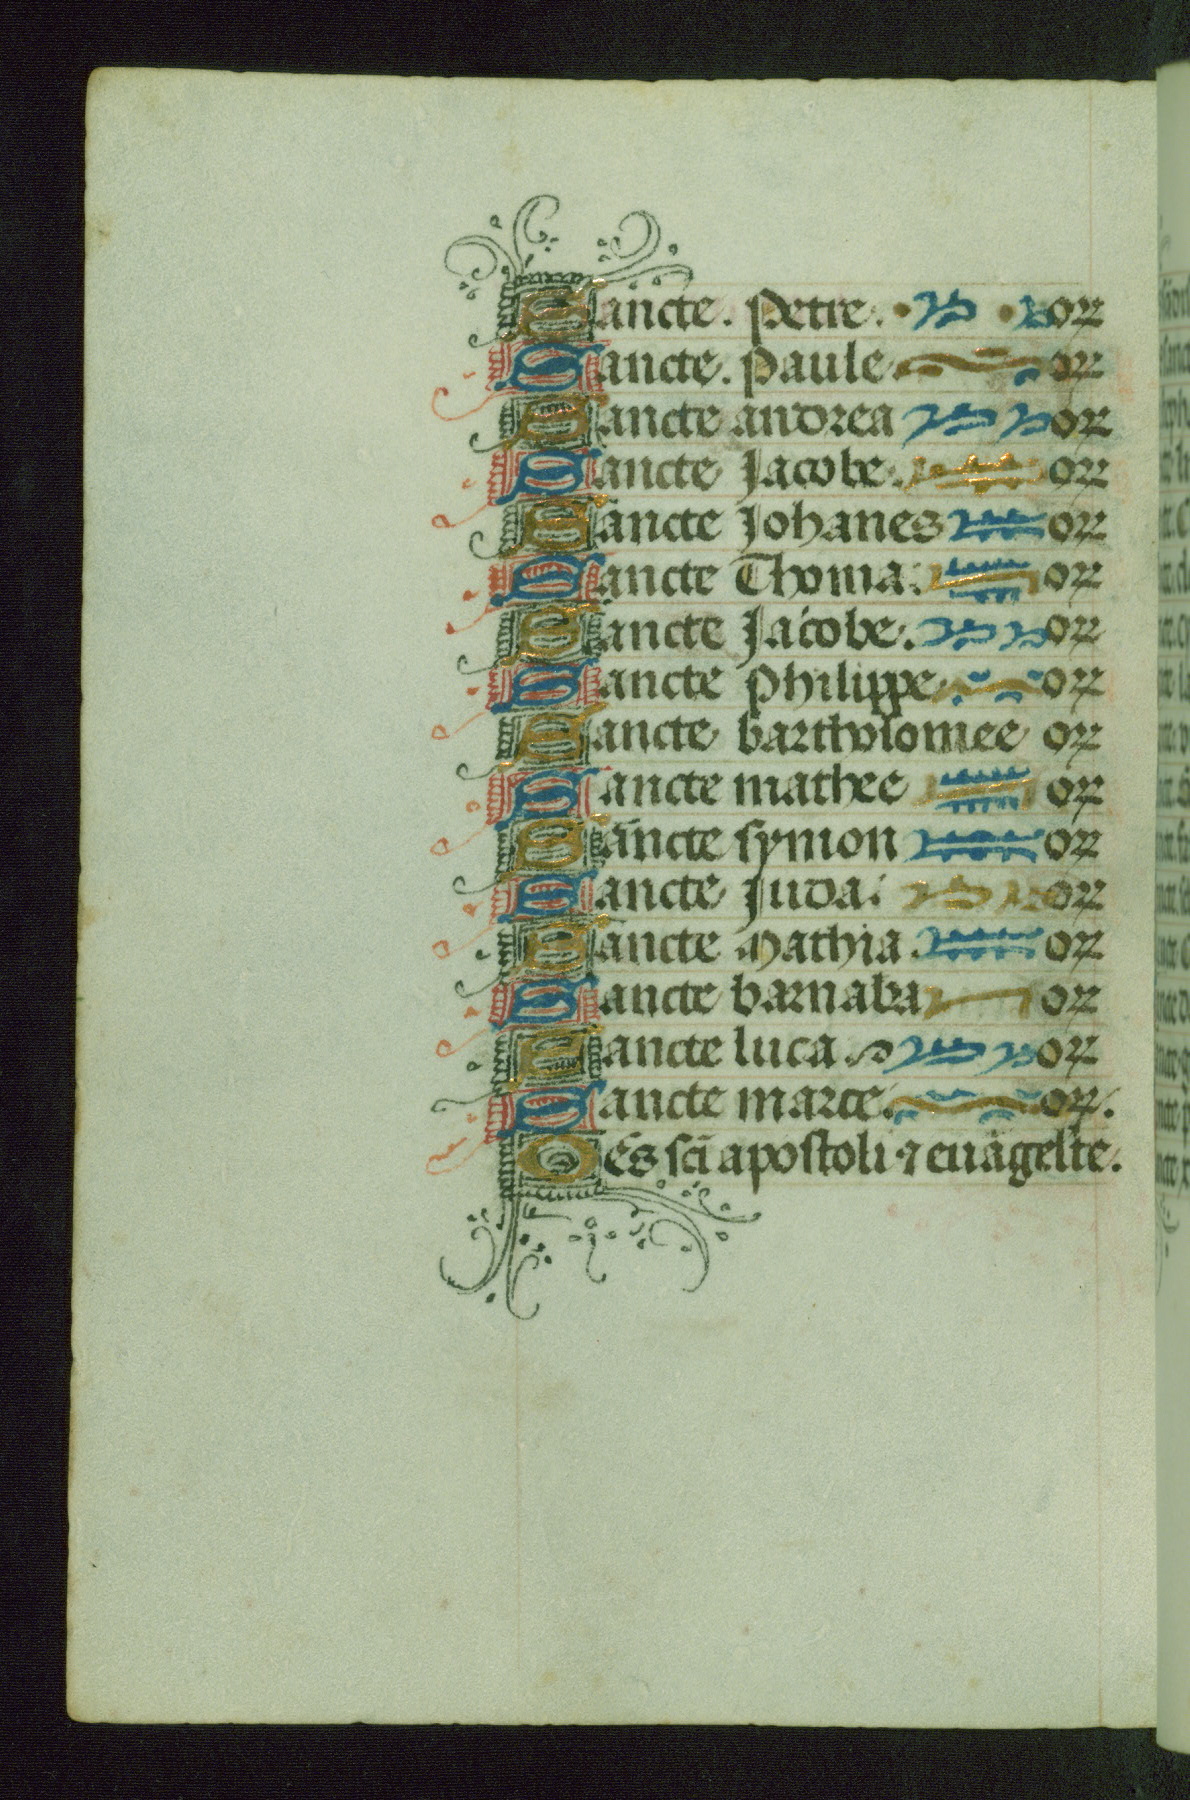 Sancte. Petre. oꝝ
Sancte. paule oꝝ
Sancte andrea oꝝ
Sancte Jacobe. oꝝ
Sancte Johanes oꝝ
Sancte Thoma. oꝝ
Sancte Jacobe. oꝝ
Sancte philippe oꝝ
Sancte bartholomee oꝝ
Sancte mathee oꝝ
Sancte symon oꝝ
Sancte Juda. oꝝ
Sancte Mathia. oꝝ
Sancte barnaba oꝝ
Sancte luca. oꝝ
Sancte marce. oꝝ.
Oēs sci̅ apostoli ⁊ euāgeliste.